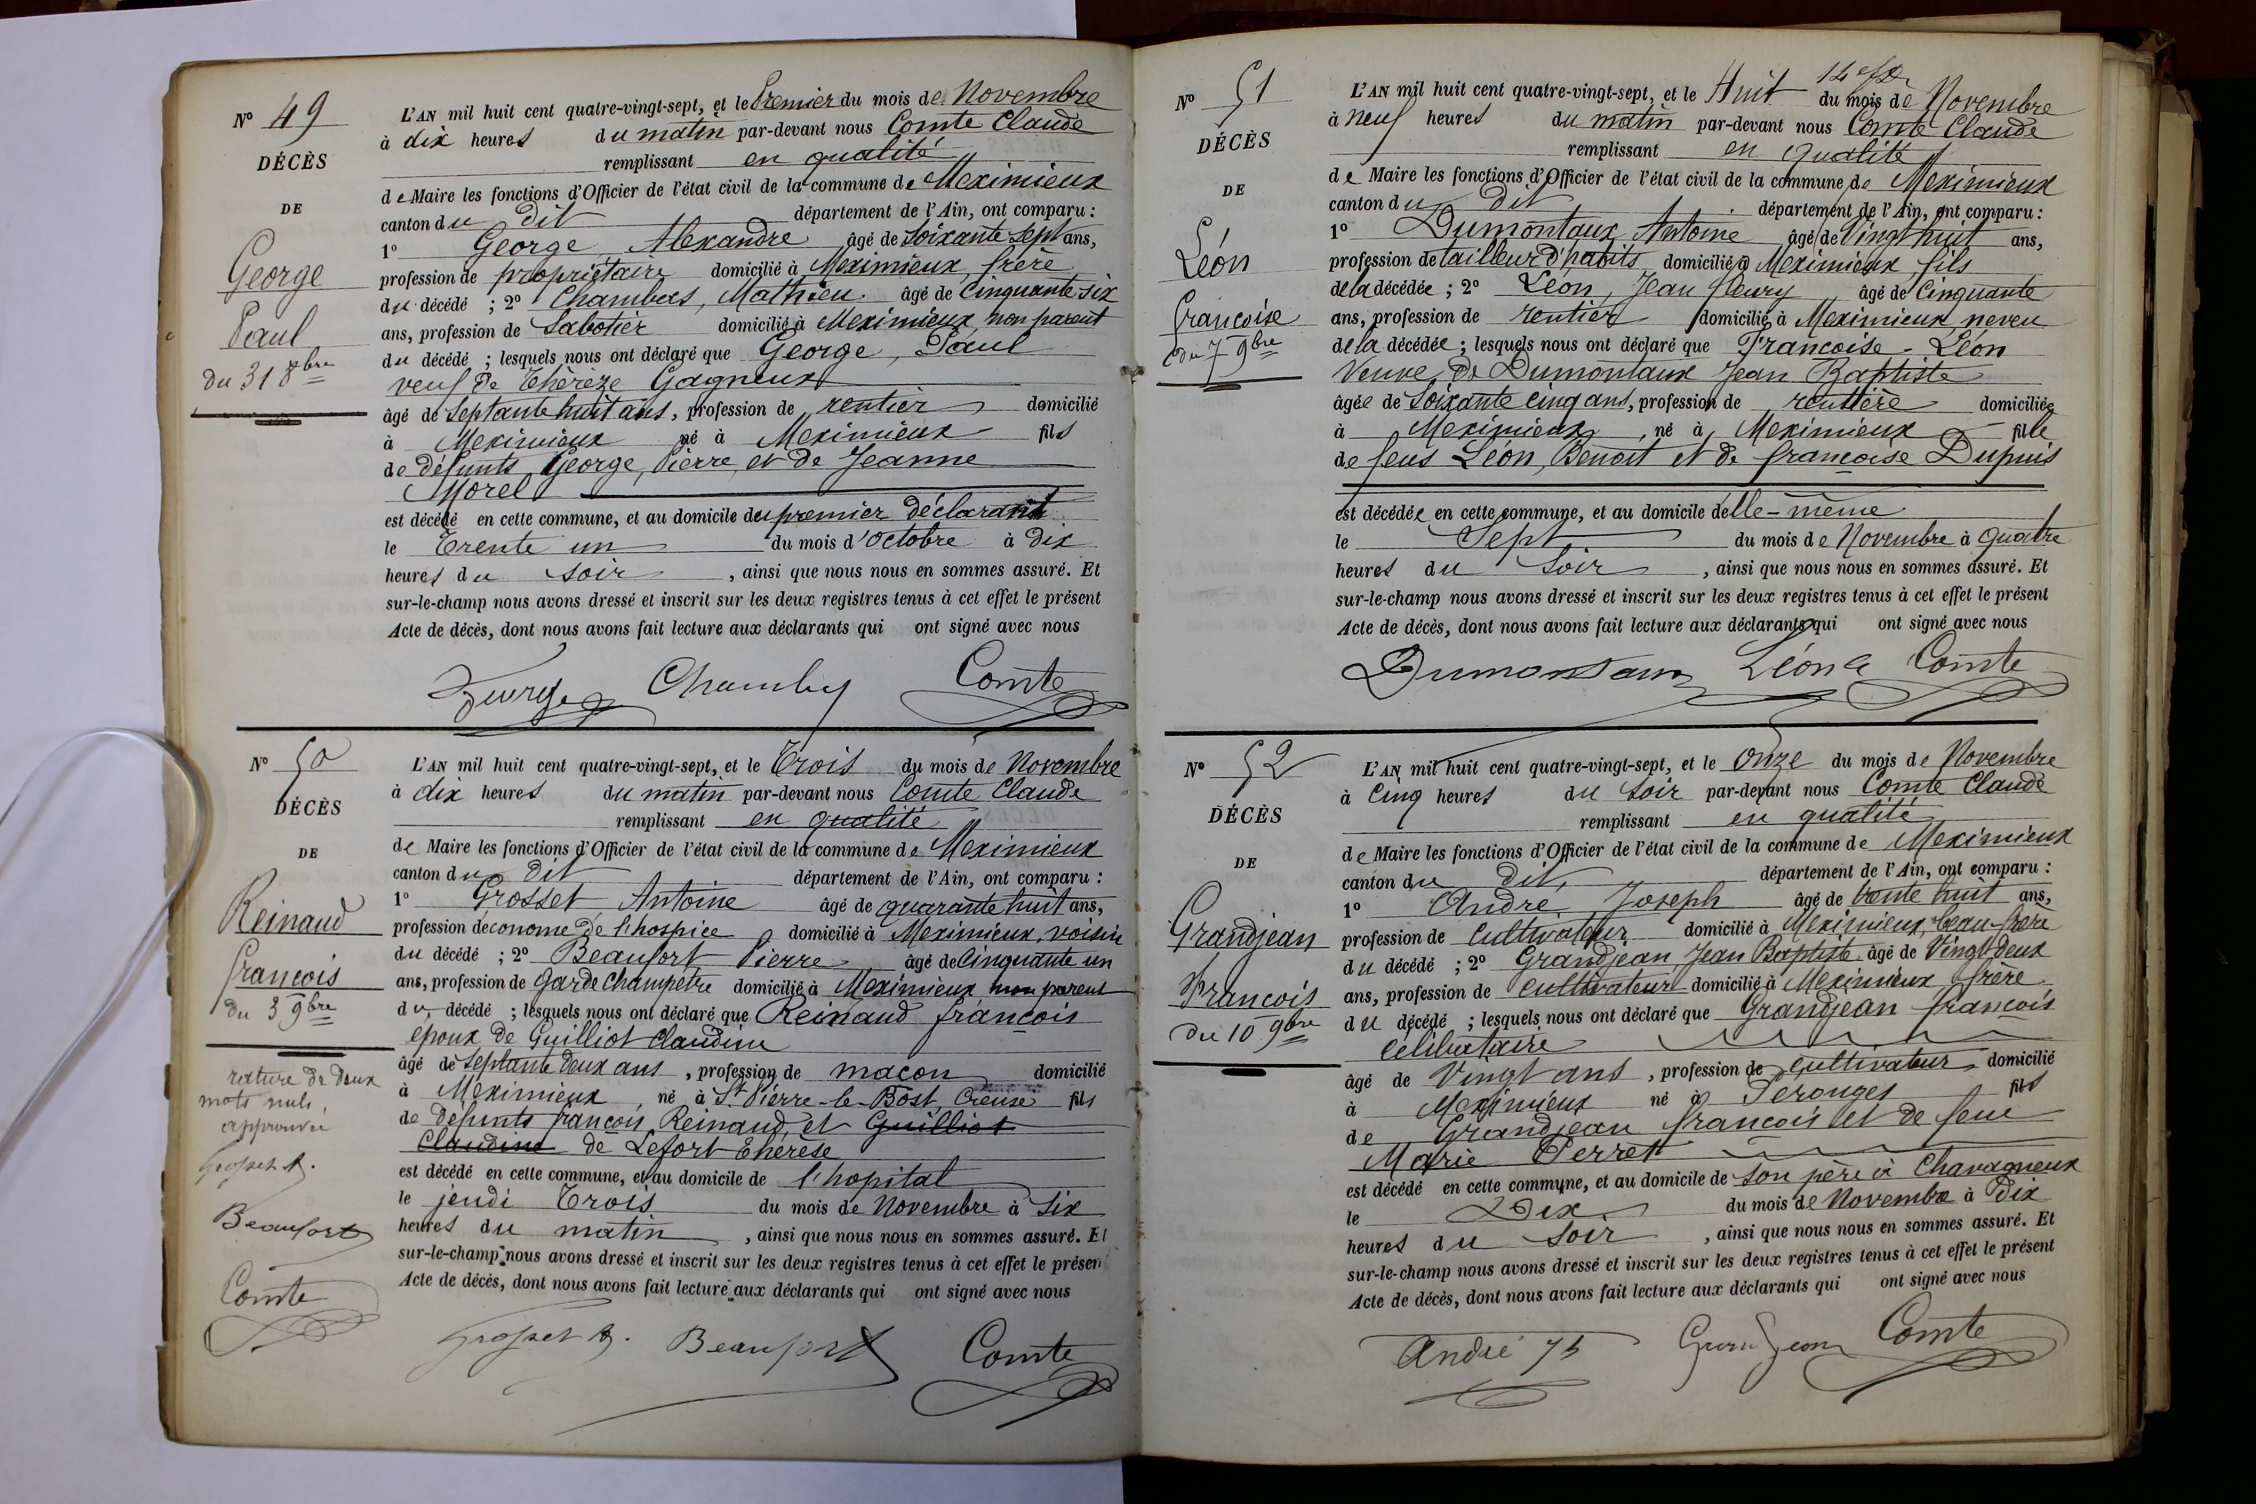 Nº 49
DÉCÈS
DE
George
Paul
du 31 8bre
L'AN mil huit cent quatre-vingt-sept, et le Premier du mois de Novembre
à dix heures du matin par-devant nous Comte Claude
remplissant en qualité
de Maire les fonctions d'Officier de l'état civil de la commune de Meximieux
canton du dit département de l'Ain, ont comparu :
1º George, Alexandre âgé de soixante sept ans,
profession de propriétaire domicilié à Meximieux, frère
du décédé ; 2º Chambas, Mathieu âgé de Cinquante six
ans, profession de Sabotier domicilié à Meximieux, non parent
du décédé ; lesquels nous ont déclaré que George, Paul
veuf de Thérèze Gagneux
âgé de Septante huit ans, profession de rentier domicilié
à Meximieux né à Meximieux fils
de défunts George, Pierre et de Jeanne
Morel
est décédé en cette commune, et au domicile du premier déclarant
le Trente un du mois d'octobre à dix
heures du soir, ainsi que nous nous en sommes assuré. Et
sur-le-champ nous avons dressé et inscrit sur les deux registres tenus à cet effet le présent
Acte de décès, dont nous avons fait lecture aux déclarants qui ont signé avec nous
George Comte
Nº 50
DÉCÈS
DE
Reinaud
francois
du 3 9bre
rature de deux
mots nuls,
approuvée
Grosset A.
Beaufort
Comte
L'AN mil huit cent quatre-vingt-sept, et le Trois du mois de Novembre
à dix heures du matin par-devant nous Comte Claude
remplissant en qualité
de Maire les fonctions d'Officier de l'état civil de la commune de Meximieux
canton du dit département de l'Ain, ont comparu :
1º Grosset Antoine âgé de quarante huit ans,
profession d'économe de l'hospice domicilié à Meximieux, voisin
du décédé ; 2º Beaufort Pierre âgé de Cinquante un
ans, profession de Garde Champêtre domicilié à Meximieux non parent
du décédé ; lesquels nous ont déclaré que Reinaud francois
epoux de Guilliot Claudine
âgé de Septante deux ans, profession de macon domicilié
à Meximieux, né à St. Pierre-le-Bost, Creuse fils
de défunts francois Reinaud, et Guilliot
Claudine de Lefort Thérèse
est décédé en cette commune, et au domicile de l'hopital
le jeudi Trois du mois de Novembre à Six
heures du matin, ainsi que nous nous en sommes assuré. Et
sur-le-champ nous avons dressé et inscrit sur les deux registres tenus à cet effet le présent
Acte de décès, dont nous avons fait lecture aux déclarants qui ont signé avec nous
Grosset A. Beaufort Comte
Nº 51
DÉCÈS
DE
Léon
francoise
du 7 9bre
L'AN mil huit cent quatre-vingt-sept, et le Huit du mois de Novembre
à neuf heures du matin par-devant nous Comte Claude
remplissant en qualité
de Maire les fonctions d'Officier de l'état civil de la commune de Meximieux
canton du dit département de l'Ain, ont comparu :
1º Dumontaux Antoine âgé de Vingt huit ans,
profession de tailleur d'habits domicilié à Meximieux, fils
de la décédée ; 2º Léon, Jean fleury âgé de Cinquante
ans, profession de rentier domicilié à Meximieux, neveu
de la décédée ; lesquels nous ont déclaré que Francoise - Léon
Veuve de Dumontaux Jean Baptiste
âgée de Soixante cinq ans, profession de rentière domiciliée
à Meximieux, né à Meximieux fille
de feus Léon, Benoit et de francoise Dupuis
est décédée en cette commune, et au domicile d'elle-même
le Sept du mois de Novembre à quatre
heures du Soir, ainsi que nous nous en sommes assuré. Et
sur-le-champ nous avons dressé et inscrit sur les deux registres tenus à cet effet le présent
Acte de décès, dont nous avons fait lecture aux déclarants qui ont signé avec nous
Dumontaux Léon Comte
Nº 52
DÉCÈS
DE
Grandjean
Francois
du 10 9bre
L'AN mil huit cent quatre-vingt-sept, et le Onze du mois de Novembre
à Cinq heures du Soir par-devant nous Comte Claude
remplissant en qualité
de Maire les fonctions d'Officier de l'état civil de la commune de Meximieux
canton du dit, département de l'Ain, ont comparu :
1º André Joseph âgé de trente huit ans,
profession de Cultivateur domicilié à Meximieux, beau-frère
du décédé ; 2º Grandjean Jean Baptiste âgé de Vingt deux
ans, profession de cultivateur domicilié à Meximieux, frère
du décédé ; lesquels nous ont déclaré que Grandjean francois
célibataire
âgé de Vingt ans, profession de Cultivateur domicilié
à Meximieux né à Perouges fils
de Grandjean francois et de feue
Marie Perret
est décédé en cette commune, et au domicile de son père à Chavagneux
le Dix du mois de Novembre à dix
heures du Soir, ainsi que nous nous en sommes assuré. Et
sur-le-champ nous avons dressé et inscrit sur les deux registres tenus à cet effet le présent
Acte de décès, dont nous avons fait lecture aux déclarants qui ont signé avec nous
André Grandjean Comte